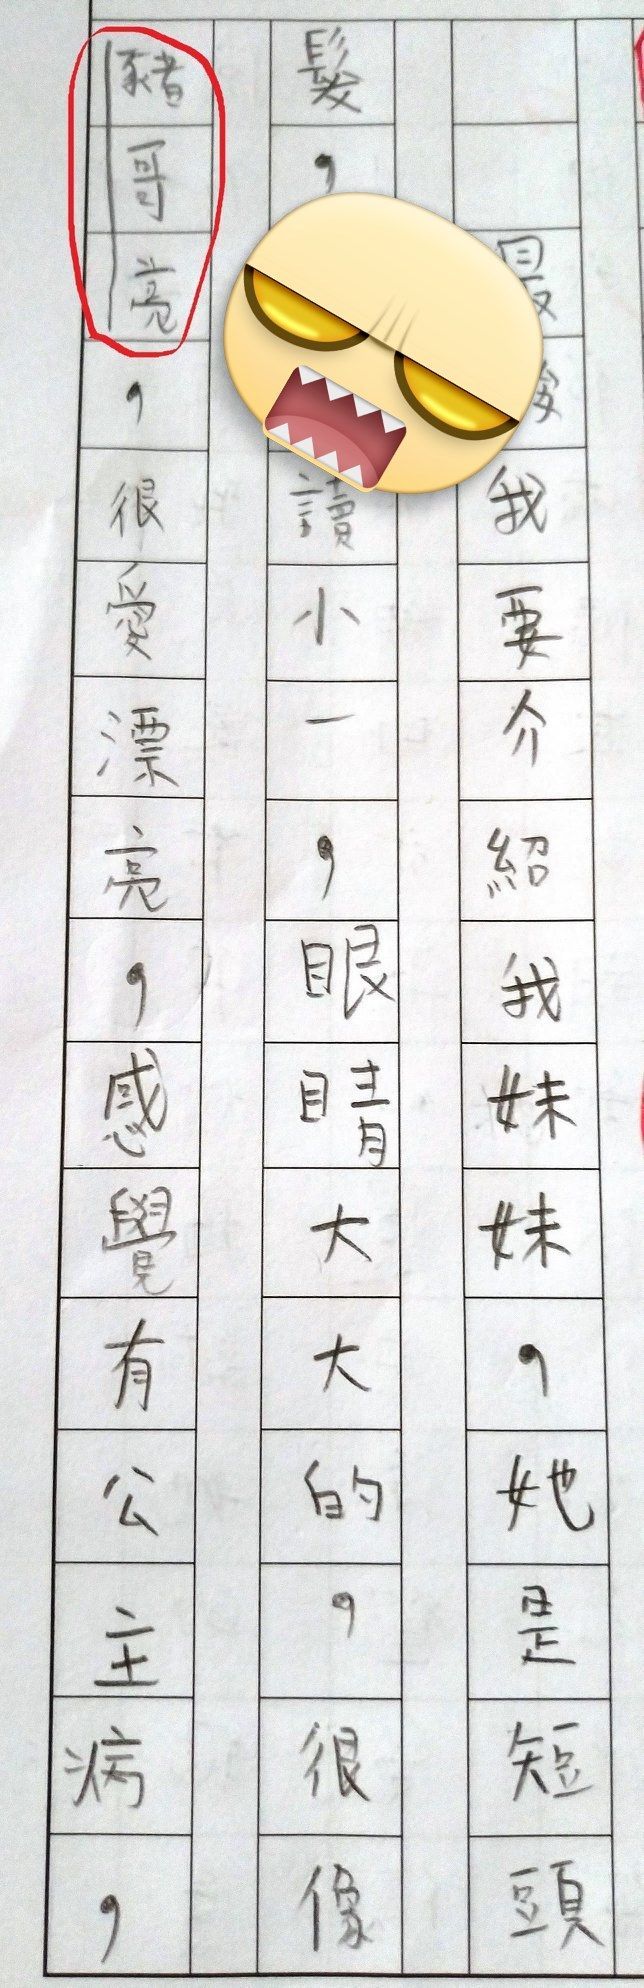 最後我要介紹我妹妹，她是短頭
髮，讀小一，眼睛大大的，很像
豬哥亮，很愛漂亮，感覺有公主病，